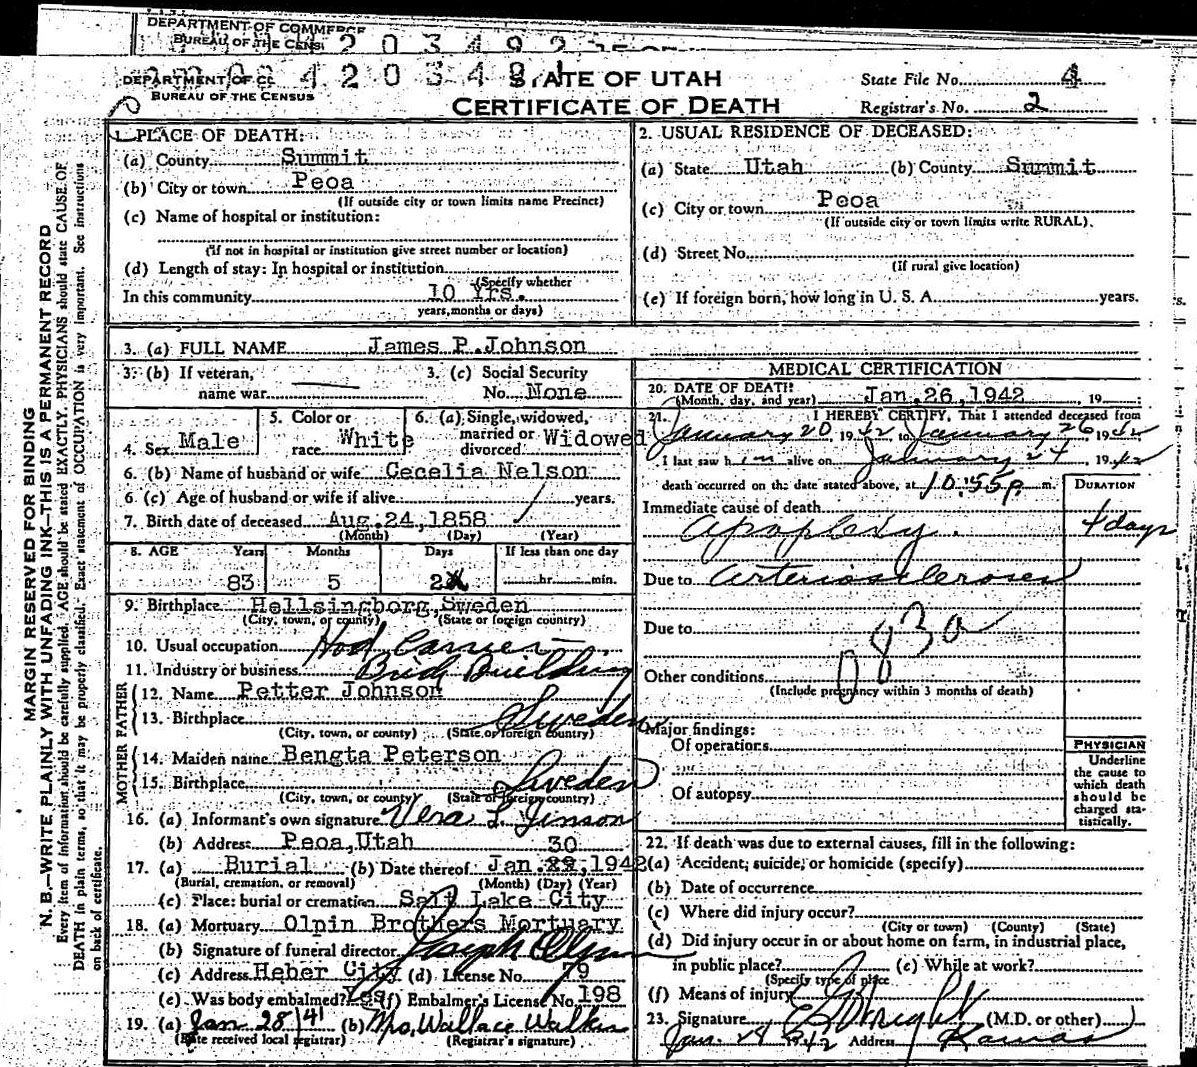 DEPARTMENT OF COMMERCE
BUREAU OF THE CENSUS
DEPARTMENT OF CO
BUREAU OF THE CENSUS
STATE OF UTAH
CERTIFICATE OF DEATH
State File No. 4
Registrar's No. 2
MARGIN RESERVED FOR BINDING
N. B.—WRITE PLAINLY WITH UNFADING INK—THIS IS A PERMANENT RECORD
Every item of information should be carefully supplied. AGE should be stated EXACTLY. PHYSICIANS should state CAUSE OF
DEATH in plain terms, so that it may be properly classified. Exact statement of OCCUPATION is very important. See instructions
on back of certificate.
1. PLACE OF DEATH:
(a) County Summit
(b) City or town Peoa
(If outside city or town limits name Precinct)
(c) Name of hospital or institution:
(If not in hospital or institution give street number or location)
(d) Length of stay: In hospital or institution
(Specify whether
In this community 10 Yrs.
years, months or days)
2. USUAL RESIDENCE OF DECEASED:
(a) State Utah (b) County Summit
(c) City or town Peoa
(If outside city or town limits write RURAL)
(d) Street No.
(If rural give location)
(e) If foreign born, how long in U. S. A. years.
3. (a) FULL NAME James P. Johnson
3. (b) If veteran,
name war
3. (c) Social Security
No. None
4. Sex Male
5. Color or
race White
6. (a) Single, widowed,
married or
divorced Widowed
6. (b) Name of husband or wife Cecelia Nelson
6. (c) Age of husband or wife if alive years.
7. Birth date of deceased Aug. 24, 1858
(Month) (Day) (Year)
8. AGE Years Months Days If less than one day
83 5 2 hr. min.
9. Birthplace Hellsingborg, Sweden
(City, town, or county) (State or foreign country)
10. Usual occupation Hod Carrier
11. Industry or business Brick Building
FATHER
12. Name Petter Johnson
13. Birthplace Sweden
(City, town, or county) (State or foreign country)
MOTHER
14. Maiden name Bengta Peterson
15. Birthplace Sweden
(City, town, or county) (State or foreign country)
16. (a) Informant's own signature Vera L.
(b) Address Peoa, Utah
30
17. (a) Burial (b) Date thereof Jan. 29, 1942
(Burial, cremation, or removal) (Month) (Day) (Year)
(c) Place: burial or cremation Salt Lake City
18. (a) Mortuary Olpin Brothers Mortuary
(b) Signature of funeral director Joseph Olpin
(c) Address Heber City (d) License No. 79
(e) Was body embalmed? Yes (f) Embalmer's License No. 198
19. (a) Jan 28/41 (b) Mrs. Wallace Walker
(Date received local registrar) (Registrar's signature)
MEDICAL CERTIFICATION
20. DATE OF DEATH:
(Month, day, and year) Jan. 26, 1942, 19
21. I HEREBY CERTIFY, That I attended deceased from
January 20 1942 to January 26 1942
I last saw him alive on January 24, 1942
death occurred on the date stated above, at 10:55 p. m.
DURATION
Immediate cause of death
Apoplexy. 4 days
Due to Arteriosclerosis
Due to
083a
Other conditions
(Include pregnancy within 3 months of death)
Major findings:
Of operations
Of autopsy
PHYSICIAN
Underline
the cause to
which death
should be
charged sta-
tistically.
22. If death was due to external causes, fill in the following:
(a) Accident, suicide, or homicide (specify)
(b) Date of occurrence
(c) Where did injury occur?
(City or town) (County) (State)
(d) Did injury occur in or about home on farm, in industrial place,
in public place? (e) While at work?
(Specify type of place
(f) Means of injury
23. Signature (M.D. or other)
Jan. 1942 Address Kamas